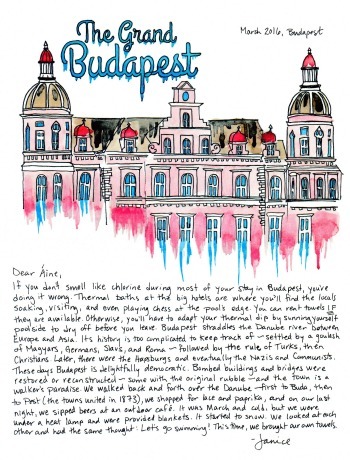 The Grand
Budapest
March 2016, Budapest
Dear Áine,
If you don't smell like chlorine during most of your stay in Budapest, you're
doing it wrong. Thermal baths at the big hotels are where you'll find the locals
soaking, visiting, and even playing chess at the pool's edge. You can rent towels IF
they are available. Otherwise, you'll have to adapt your thermal dip by sunning yourself
poolside to dry off before you leave. Budapest straddles the Danube river between
Europe and Asia. Its history is too complicated to keep track of – settled by a goulash
of Magyars, Germans, Slavs, and Roma – followed by the rule of Turks, then
Christians. Later, there were the Hapsburgs and eventually the Nazis and Communists.
These days Budapest is delightfully democratic. Bombed buildings and bridges were
restored or reconstructed – some with the original rubble – and the town is a
walker's paradise. We walked back and forth over the Danube – first to Buda, then
to Pest (the towns united in 1873), we shopped for lace and paprika, and on our last
night, we sipped beers at an outdoor café. It was March and cold, but we were
under a heat lamp and were provided blankets. It started to snow. We looked at each
other and had the same thought: Let's go swimming! This time, we brought our own towels.
-Janice